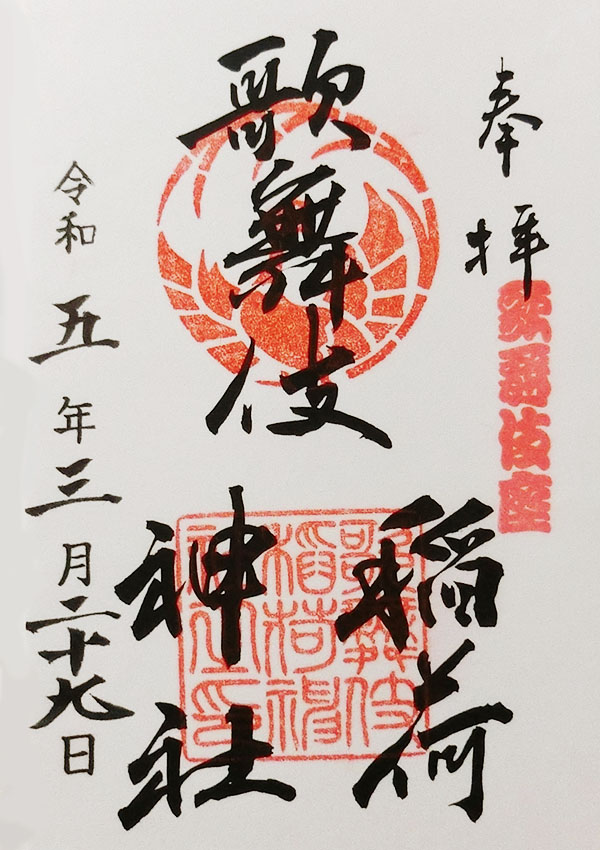 奉拝
歌舞伎座
歌舞伎
稲荷
神社
歌舞伎
稲荷神
社之印
令和五年三月二十九日